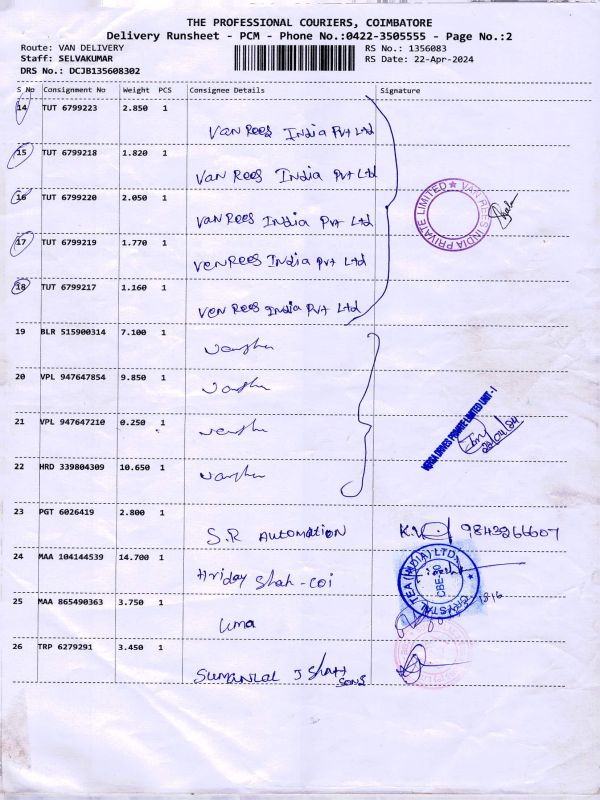 THE PROFESSIONAL COURIERS, COIMBATORE
Delivery Runsheet - PCM - Phone No.:0422-3505555 - Page No.:2
Route: VAN DELIVERY RS No.: 1356083
Staff: SELVAKUMAR RS Date: 22-Apr-2024
DRS No.: DCJB135608302
S No Consignment No Weight PCS Consignee Details Signature
14 TUT 6799223 2.850 1
Van Rees India Pvt Ltd
15 TUT 6799218 1.820 1
Van Rees India Pvt Ltd
16 TUT 6799220 2.050 1
Van Rees India Pvt Ltd
VAN REES INDIA PRIVATE LIMITED
17 TUT 6799219 1.770 1
Ven Rees India Pvt Ltd
18 TUT 6799217 1.160 1
Ven Rees India Pvt Ltd
19 BLR 515900314 7.100 1
20 VPL 947647854 9.850 1
21 VPL 947647210 0.250 1
DRIVES PRIVATE LIMITED UNIT - I
22/04/24
22 HRD 339804309 10.650 1
23 PGT 6026419 2.800 1
S.R AUTOMATION 9843866607
24 MAA 104144539 14.700 1
Hriday Shah - COI
CRYSTAL TEA (INDIA) LTD.
25 MAA 865490363 3.750 1
Uma
26 TRP 6279291 3.450 1
Sumanlal J Shah
SONS